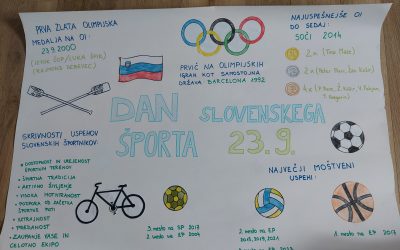 PRVA ZLATA OLIMPIJSKA
MEDALJA NA OI:
23.9.2000
(IZTOK ČOP/LUKA ŠPIK)
(RAJMOND DEBEVEC)
NAJUSPEŠNEJŠE OI
DO SEDAJ:
SOČI 2014
2x (Tina Maze)
PRVIČ NA OLIMPIJSKIH
IGRAH KOT SAMOSTOJNA
DRŽAVA BARCELONA 1992
DAN SLOVENSKEGA
ŠPORTA 23.9.
SKRIVNOSTI USPEHOV
SLOVENSKIH ŠPORTNIKOV:
• DOSTOPNOST IN UREJENOST
ŠPORTNIH TERENOV
• ŠPORTNA TRADICIJA
• AKTIVNO ŽIVLJENJE
• VISOKA MOTIVIRANOST
• PODPORA OD ZAČETKA
ŠPORTNE POTI
• VZTRAJNOST
• PREDANOST
• ZAUPANJE VASE IN
CELOTNO EKIPO
NAJVEČJI MOŠTVENI
USPEHI:
3. mesto na SP 2017
2. mesto na EP 2004
2. mesto na EP
2015, 2019, 2021
1. mesto na EP 2017